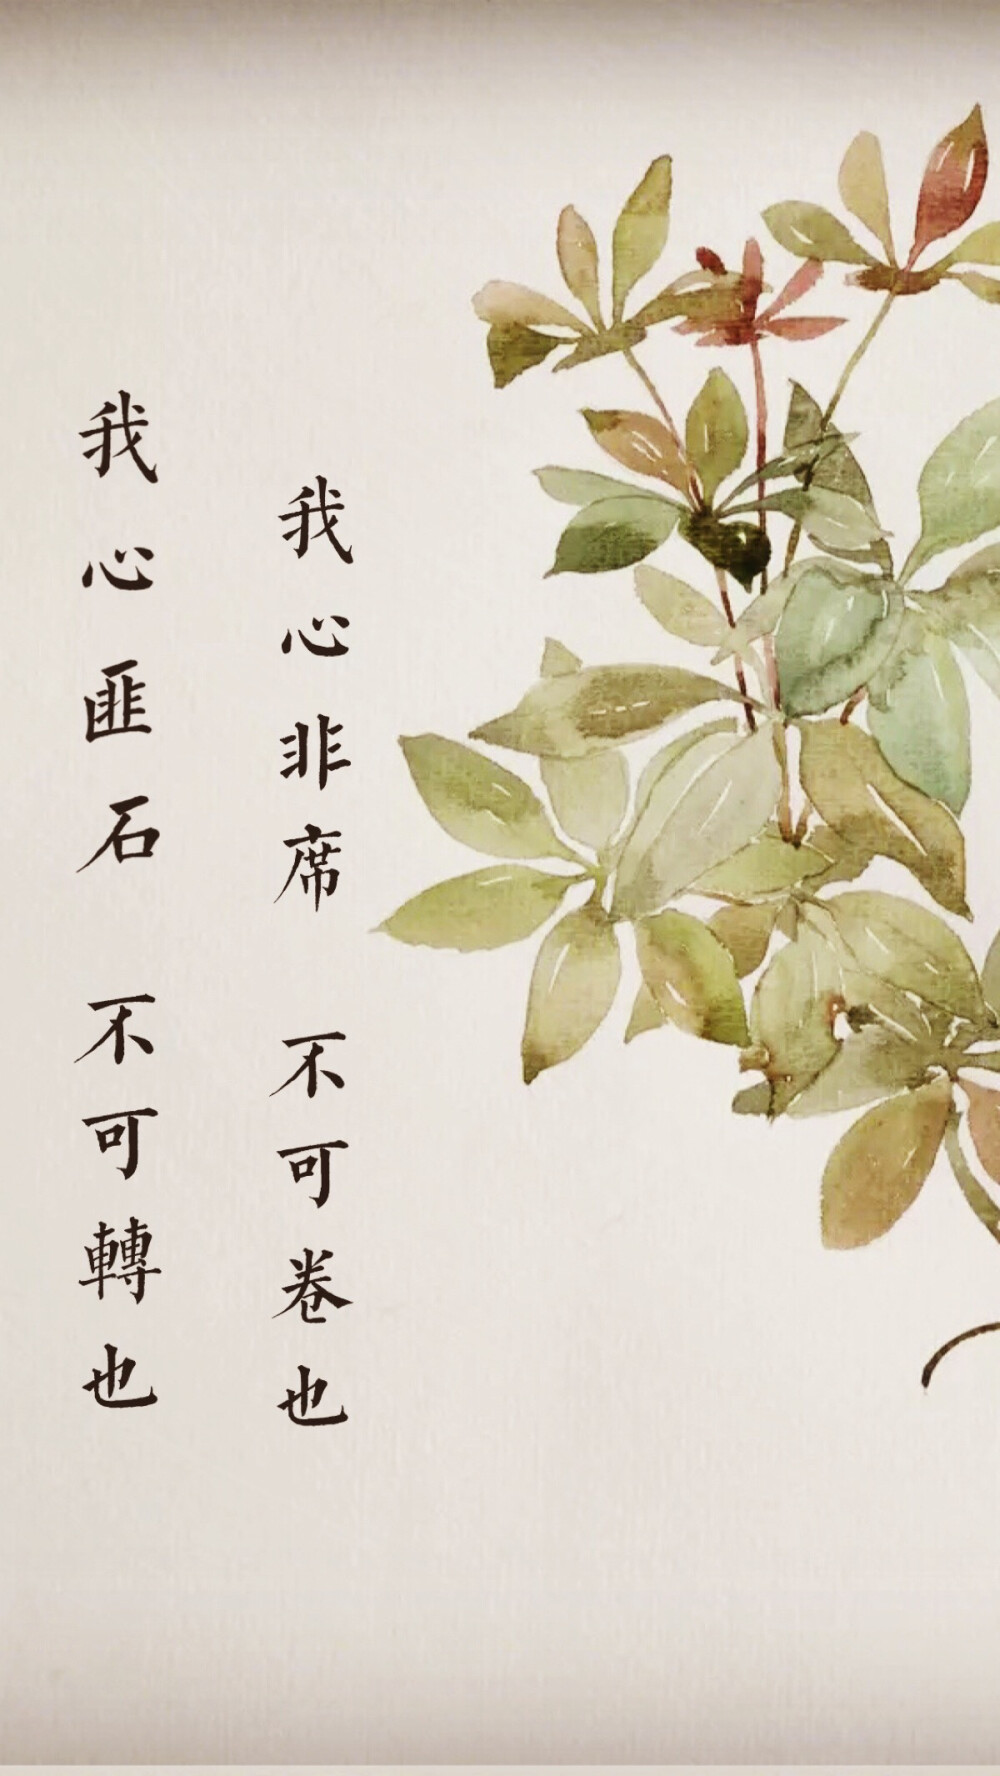 我心匪石 不可轉也
我心非席 不可卷也